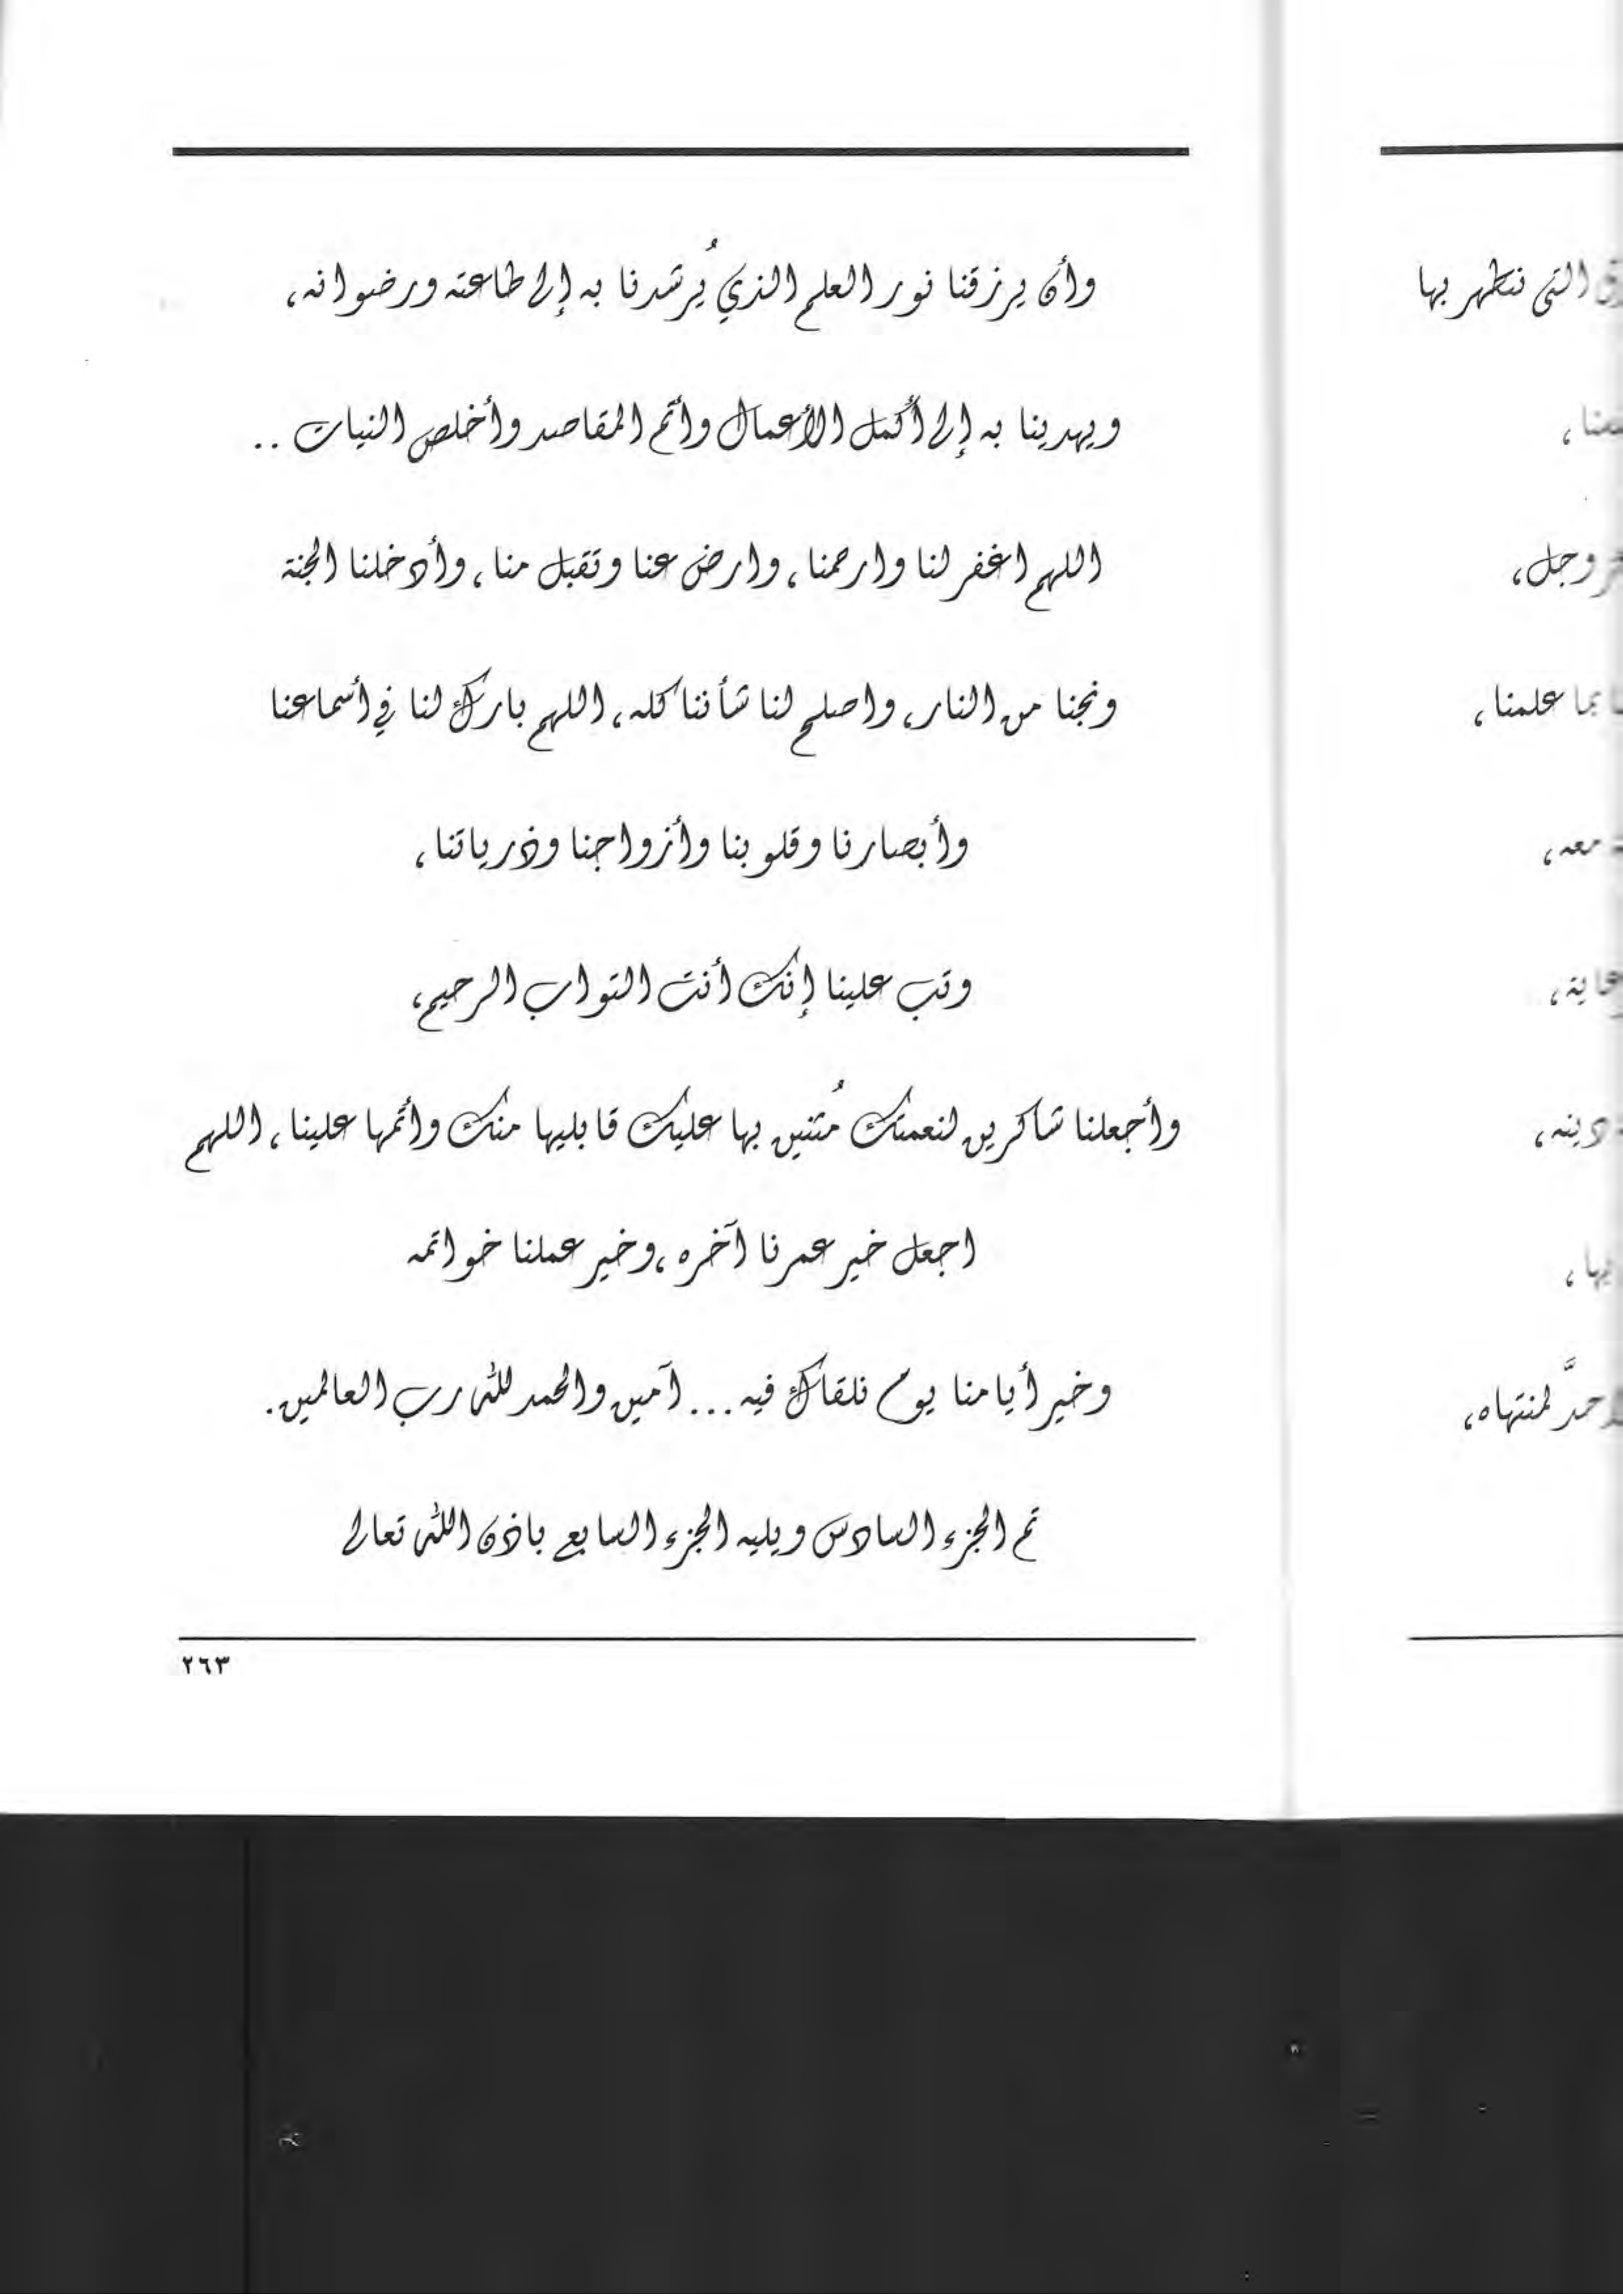 وأن يرزقنا نور العلم الذي يُرشدنا به إلى طاعته ورضوانه،
ويهدينا به إلى أكمل الأعمال وأتم المقاصد وأخلص النيات ..
اللهم اغفر لنا وارحمنا، وارض عنا وتقبل منا، وأدخلنا الجنة
ونجنا من النار، واصلح لنا شأننا كله، اللهم بارك لنا في أسماعنا
وأبصارنا وقلوبنا وأزواجنا وذرياتنا،
وتب علينا إنك أنت التواب الرحيم،
وأجعلنا شاكرين لنعمتك مُثنين بها عليك قابليها منك وأتمها علينا، اللهم
اجعل خير عمرنا آخره، وخير عملنا خواتمه
وخير أيامنا يوم نلقاك فيه... آمين والحمد لله رب العالمين.
تم الجزء السادس ويليه الجزء السابع باذن الله تعالى
٢٦٣
التي نتطهر بها
وجل،
بما علمنا،
معه،
دينه،
لمنتهاه،